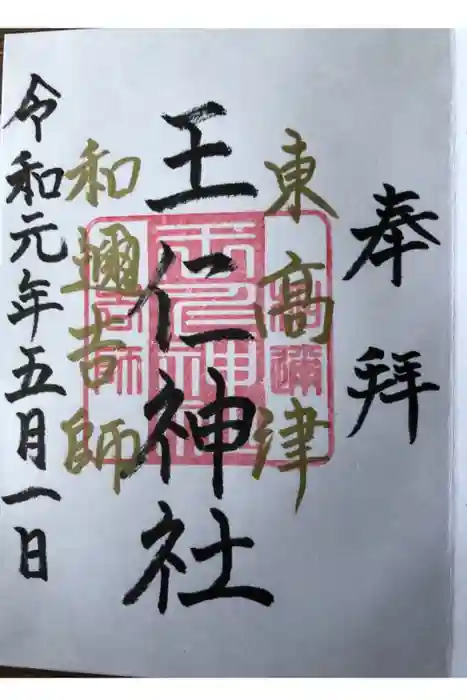 奉拝
東高津
王仁神社
和邇吉師
令和元年五月一日